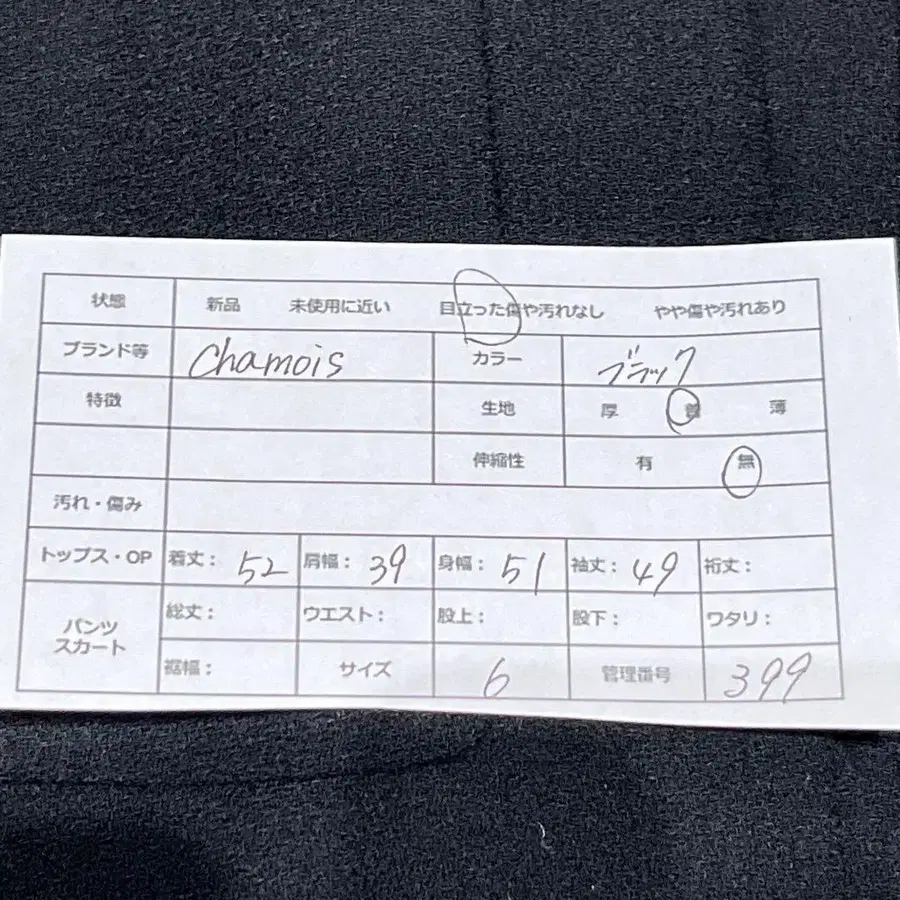 状態 新品 未使用に近い 目立った傷や汚れなし やや傷や汚れあり
ブランド等 Chamois カラー ブラック
特徴 生地 厚 普 薄
伸縮性 有 無
汚れ・傷み
トップス・OP 着丈: 52 肩幅: 39 身幅: 51 袖丈: 49 裄丈:
パンツ スカート 総丈: ウエスト: 股上: 股下: ワタリ:
裾幅: サイズ 6 管理番号 399